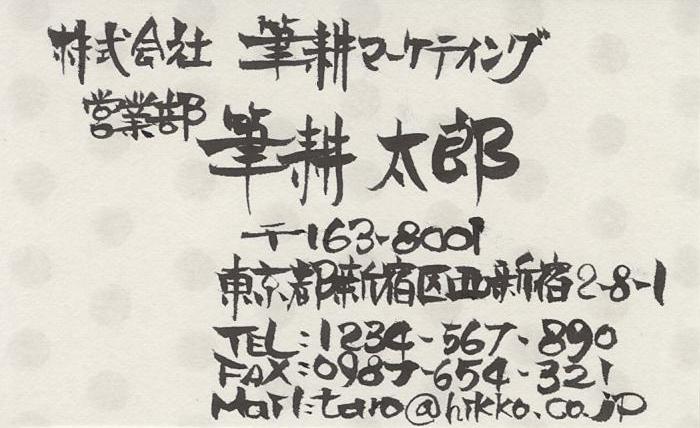 株式会社 筆耕マーケティング
営業部
筆耕 太郎
〒163-8001
東京都新宿区西新宿2-8-1
TEL:1234-567-890
FAX:0987-654-321
Mail:taro@hikko.co.jp